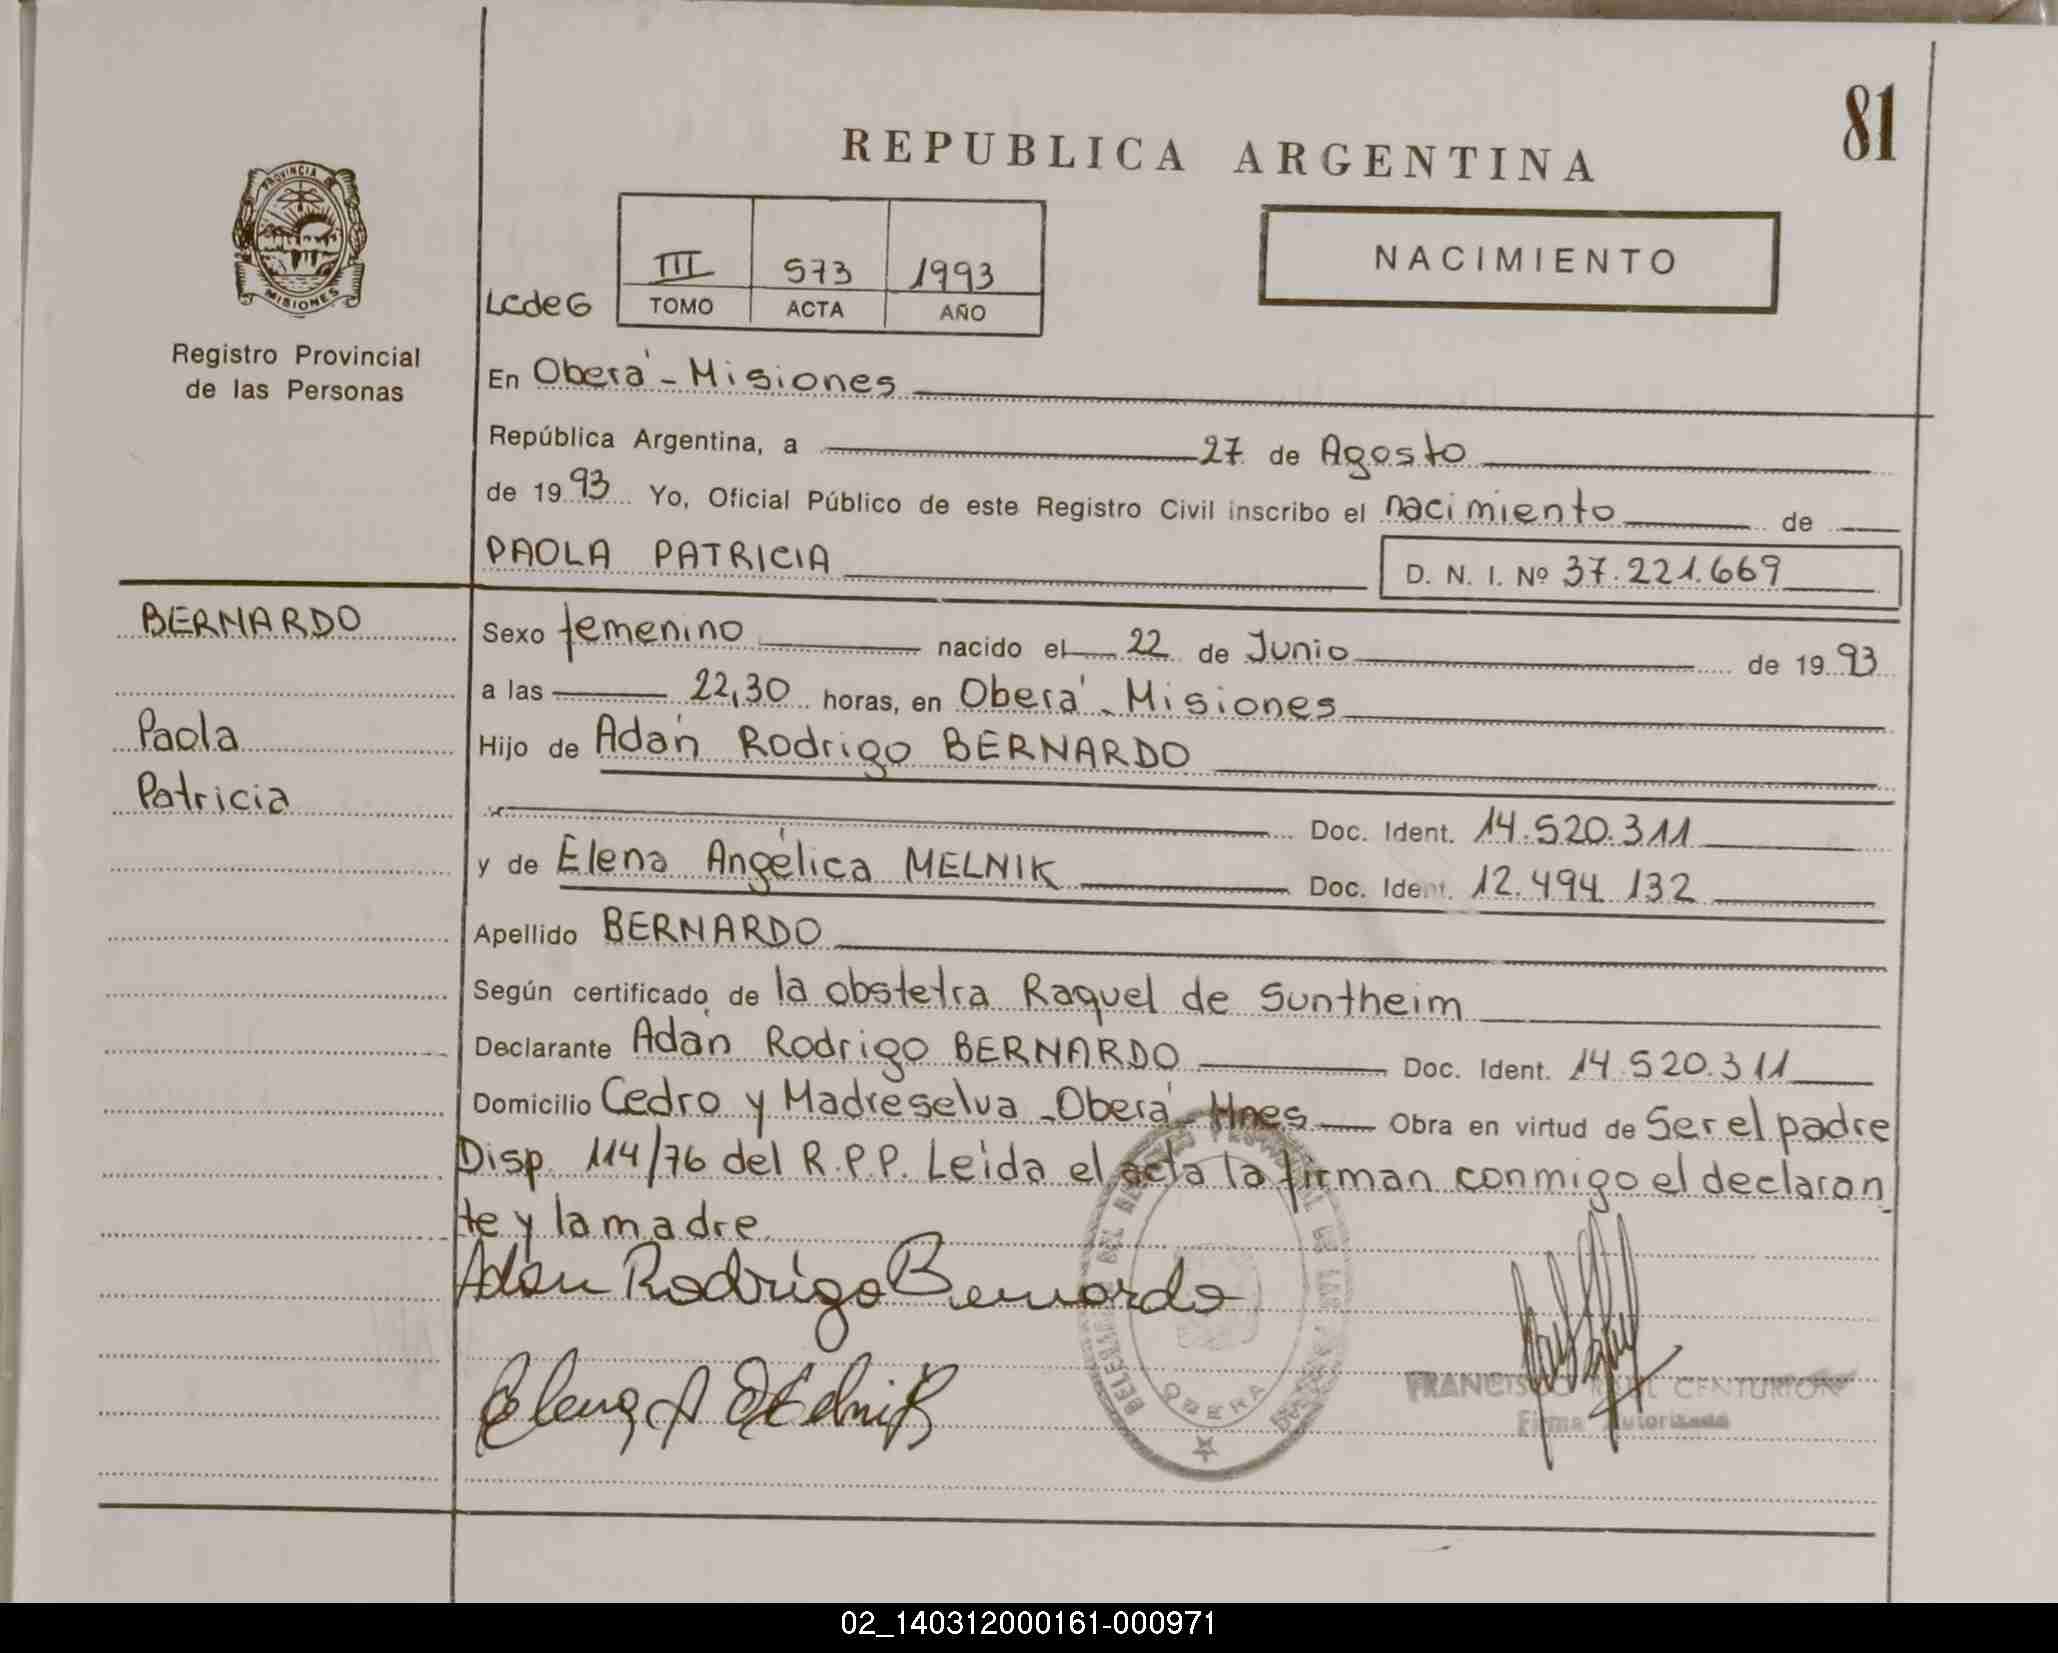 81
REPUBLICA ARGENTINA
PROVINCIA DE
MISIONES
NACIMIENTO
III 573 1993
LcdeG TOMO ACTA AÑO
Registro Provincial
de las Personas
En Oberá - Misiones
República Argentina, a 27 de Agosto
de 19 93 Yo, Oficial Público de este Registro Civil inscribo el nacimiento de
PAOLA PATRICIA D. N. I. Nº 37.221.669
BERNARDO Sexo femenino nacido el 22 de Junio de 19 93
a las 22,30 horas, en Oberá - Misiones
Paola Hijo de Adán Rodrigo BERNARDO
Patricia
Doc. Ident. 14.520.311
y de Elena Angélica MELNIK Doc. Ident. 12.494.132
Apellido BERNARDO
Según certificado de la obstetra Raquel de Suntheim
Declarante Adán Rodrigo BERNARDO Doc. Ident. 14.520.311
Domicilio Cedro y Madreselva - Oberá - Mnes Obra en virtud de Ser el padre
Disp. 114/76 del R.P.P. Leída el acta la firman conmigo el declaran
te y la madre.
Adan Rodrigo Bernardo
Elena A Melnik
OBERA
FRANCISCO RAUL CENTURION
Firma Autorizada
02_140312000161-000971